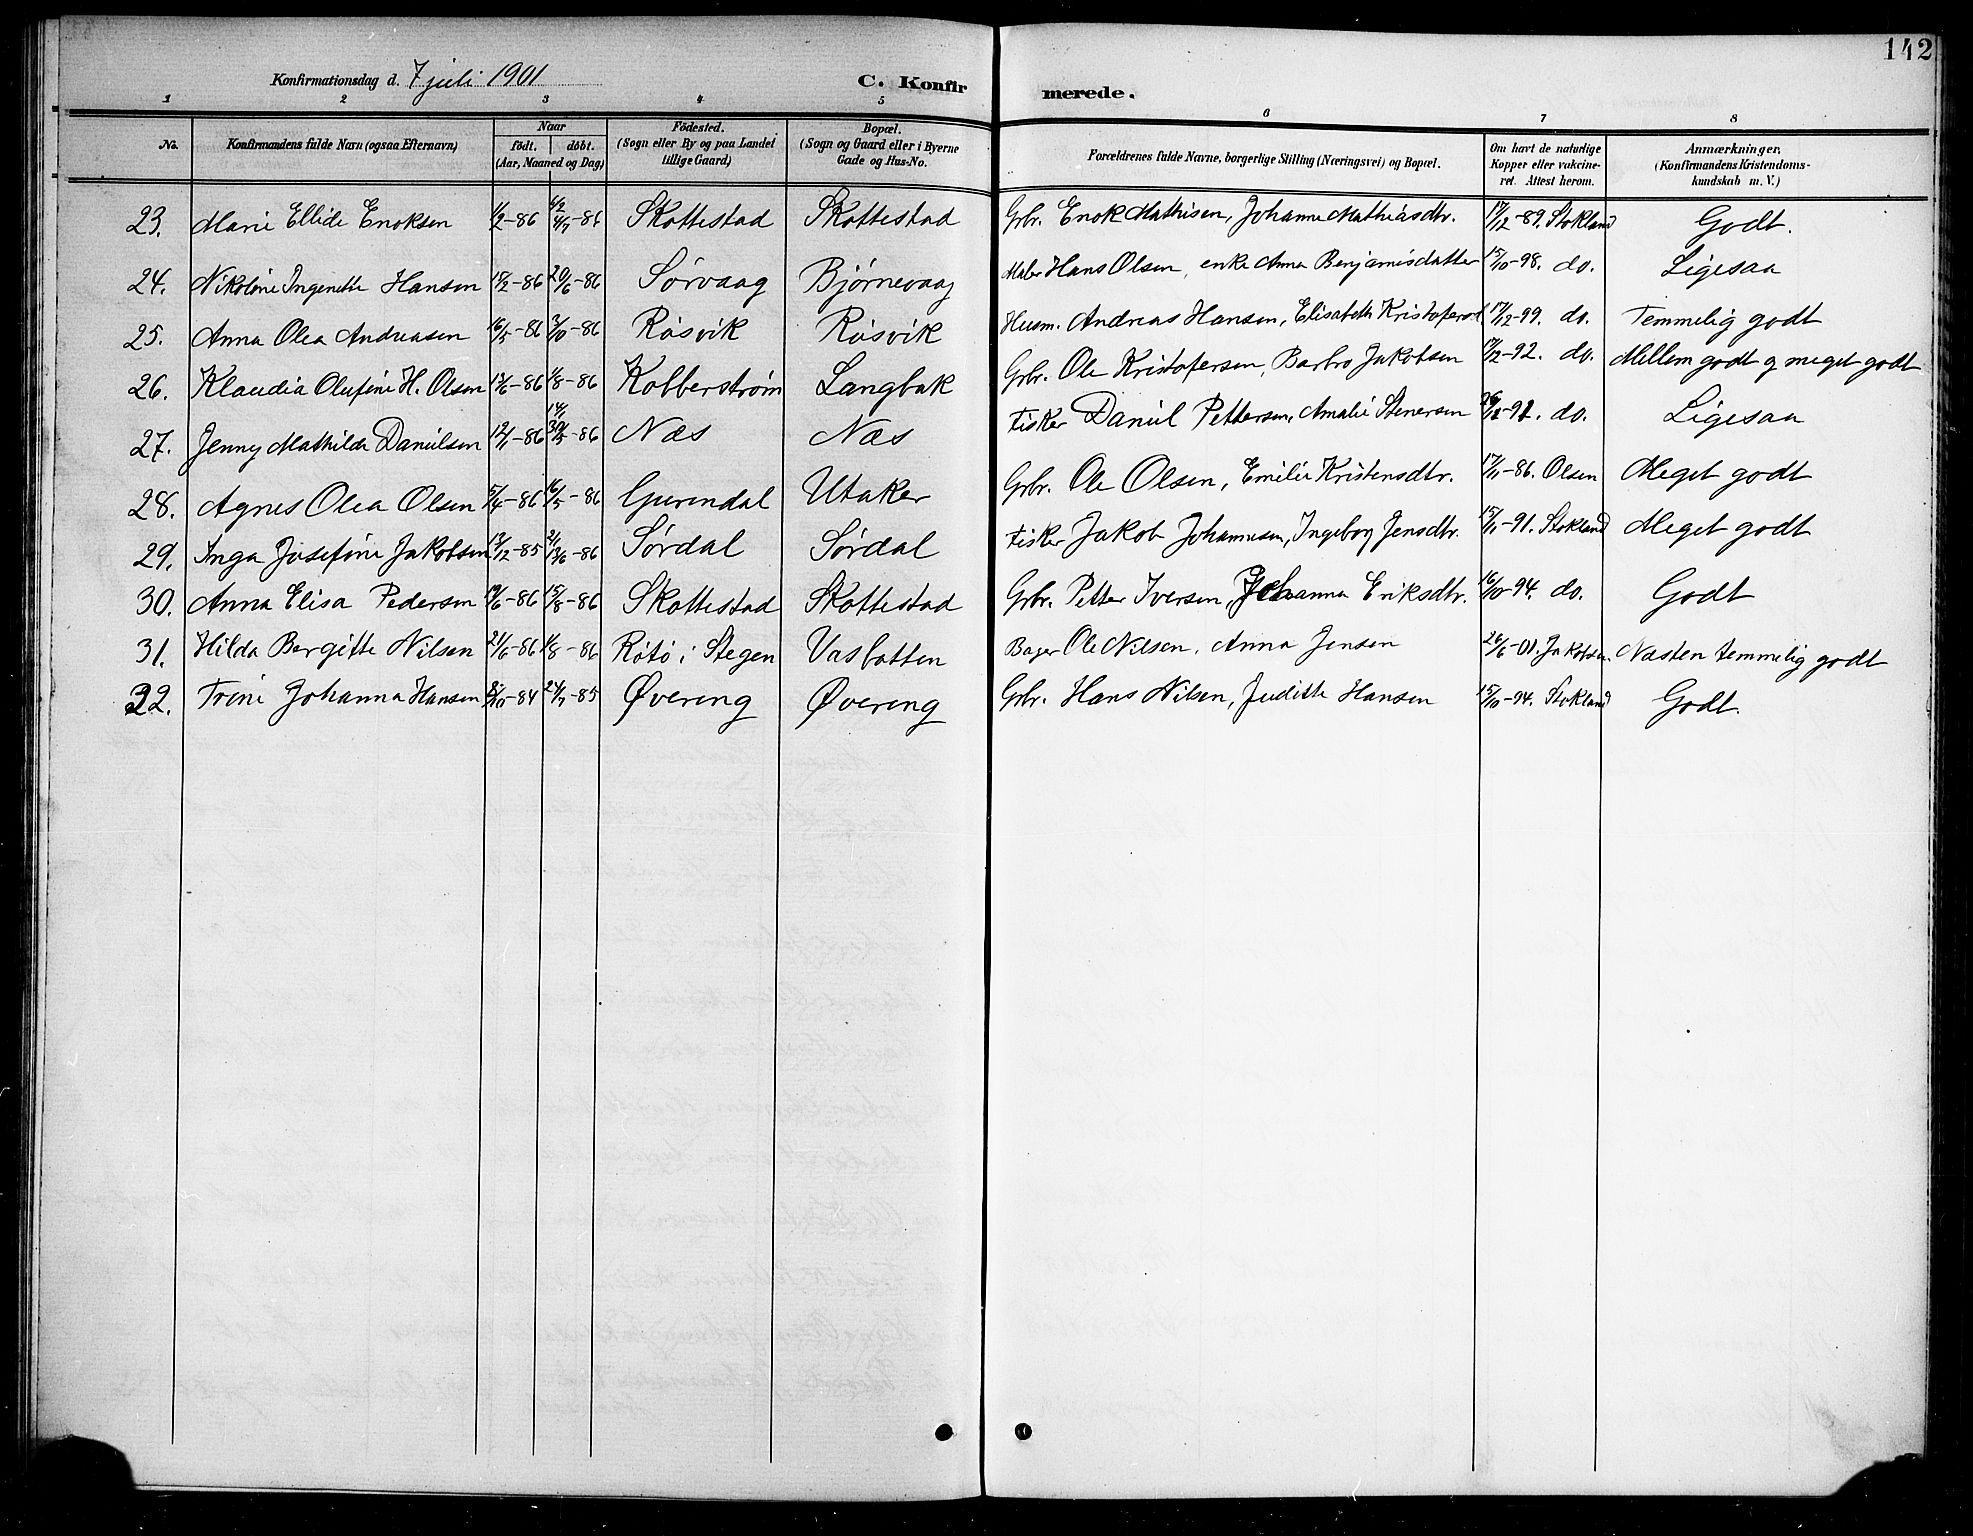 142
Konfirmationsdag d. 7 juli 1901
C. Konfirmerede.
1 2 3 4 5 6 7 8
No. Konfirmandens fulde Navn (ogsaa Efternavn) Naar födt. döbt. (Aar, Maaned og Dag) Födested. (Sogn eller By og paa Landet tillige Gaard) Bopæl. (Sogn og Gaard eller i Byerne Gade og Hus-No. Forældrenes fulde Navne, borgerlige Stilling (Næringsvei) og Bopæl. Om havt de naturlige Kopper eller vakcineret. Attest herom. Anmærkninger. (Konfirmandens Kristendomskundskab m. V.)
23. Marie Ellide Enoksen 1/2-86 -86 Skottestad Skottestad Grbr. Enok Mathisen, Johanna Mathiasdtr. 17/12-89. Stokland Godt.
24. Nikoline Ingenette Hansen 15/2-86 20/6-86 Sørvaag Bjørnevaag Maler Hans Olsen, enke Anna Benjamisdatter 15/10-98. do. Ligesaa
25. Anna Olea Andreasen 16/5-86 3/10-86 Røsvik Røsvik Husm. Andreas Hansen, Elisabeth 17/12-99. do. Temmelig godt
26. Klaudia Olufine H. Olsen -86 1/8-86 Kobberstrøm Langbak Grbr. Ole Kristofersen, Barbro Jakobsen 17/12-92. do. Mellem godt og meget godt
27. Jenny Mathilde Danielsen 12/1-86 14/1 30/5-86 Næs Næs Fisker Daniel Pettersen, Amalie Stenersen -91. do. Ligesaa
28. Agnes Olea Olsen 5/4-86 16/5-86 Gurendal Utaker Grbr. Ole Olsen, Emilie Kristensdtr. 17/11-86. Olsen Meget godt
29. Inga Josefine Jakobsen 13/12-85 -86 Sørdal Sørdal Fisker Jakob Johannesen, Ingeborg Jensdtr. 15/11-91. Stokland Meget godt
30. Anna Elisa Pedersen -86 15/8-86 Skottestad Skottestad Grbr. Petter Iversen, Johanna Eriksdtr. 16/10-94. do. Godt
31. Hilda Bergitte Nilsen 21/6-86 1/8-86 Røtø i Stegen Vasbotten Bager Ole Nilsen, Anna Jensen 26/6-01. Jakobsen. Næsten temmelig godt
32. Trine Johanna Hansen -84 -85 Øvereng Øvereng Grbr. Hans Nilsen, Judithe Hansen 15/10-94. Stokland Godt.